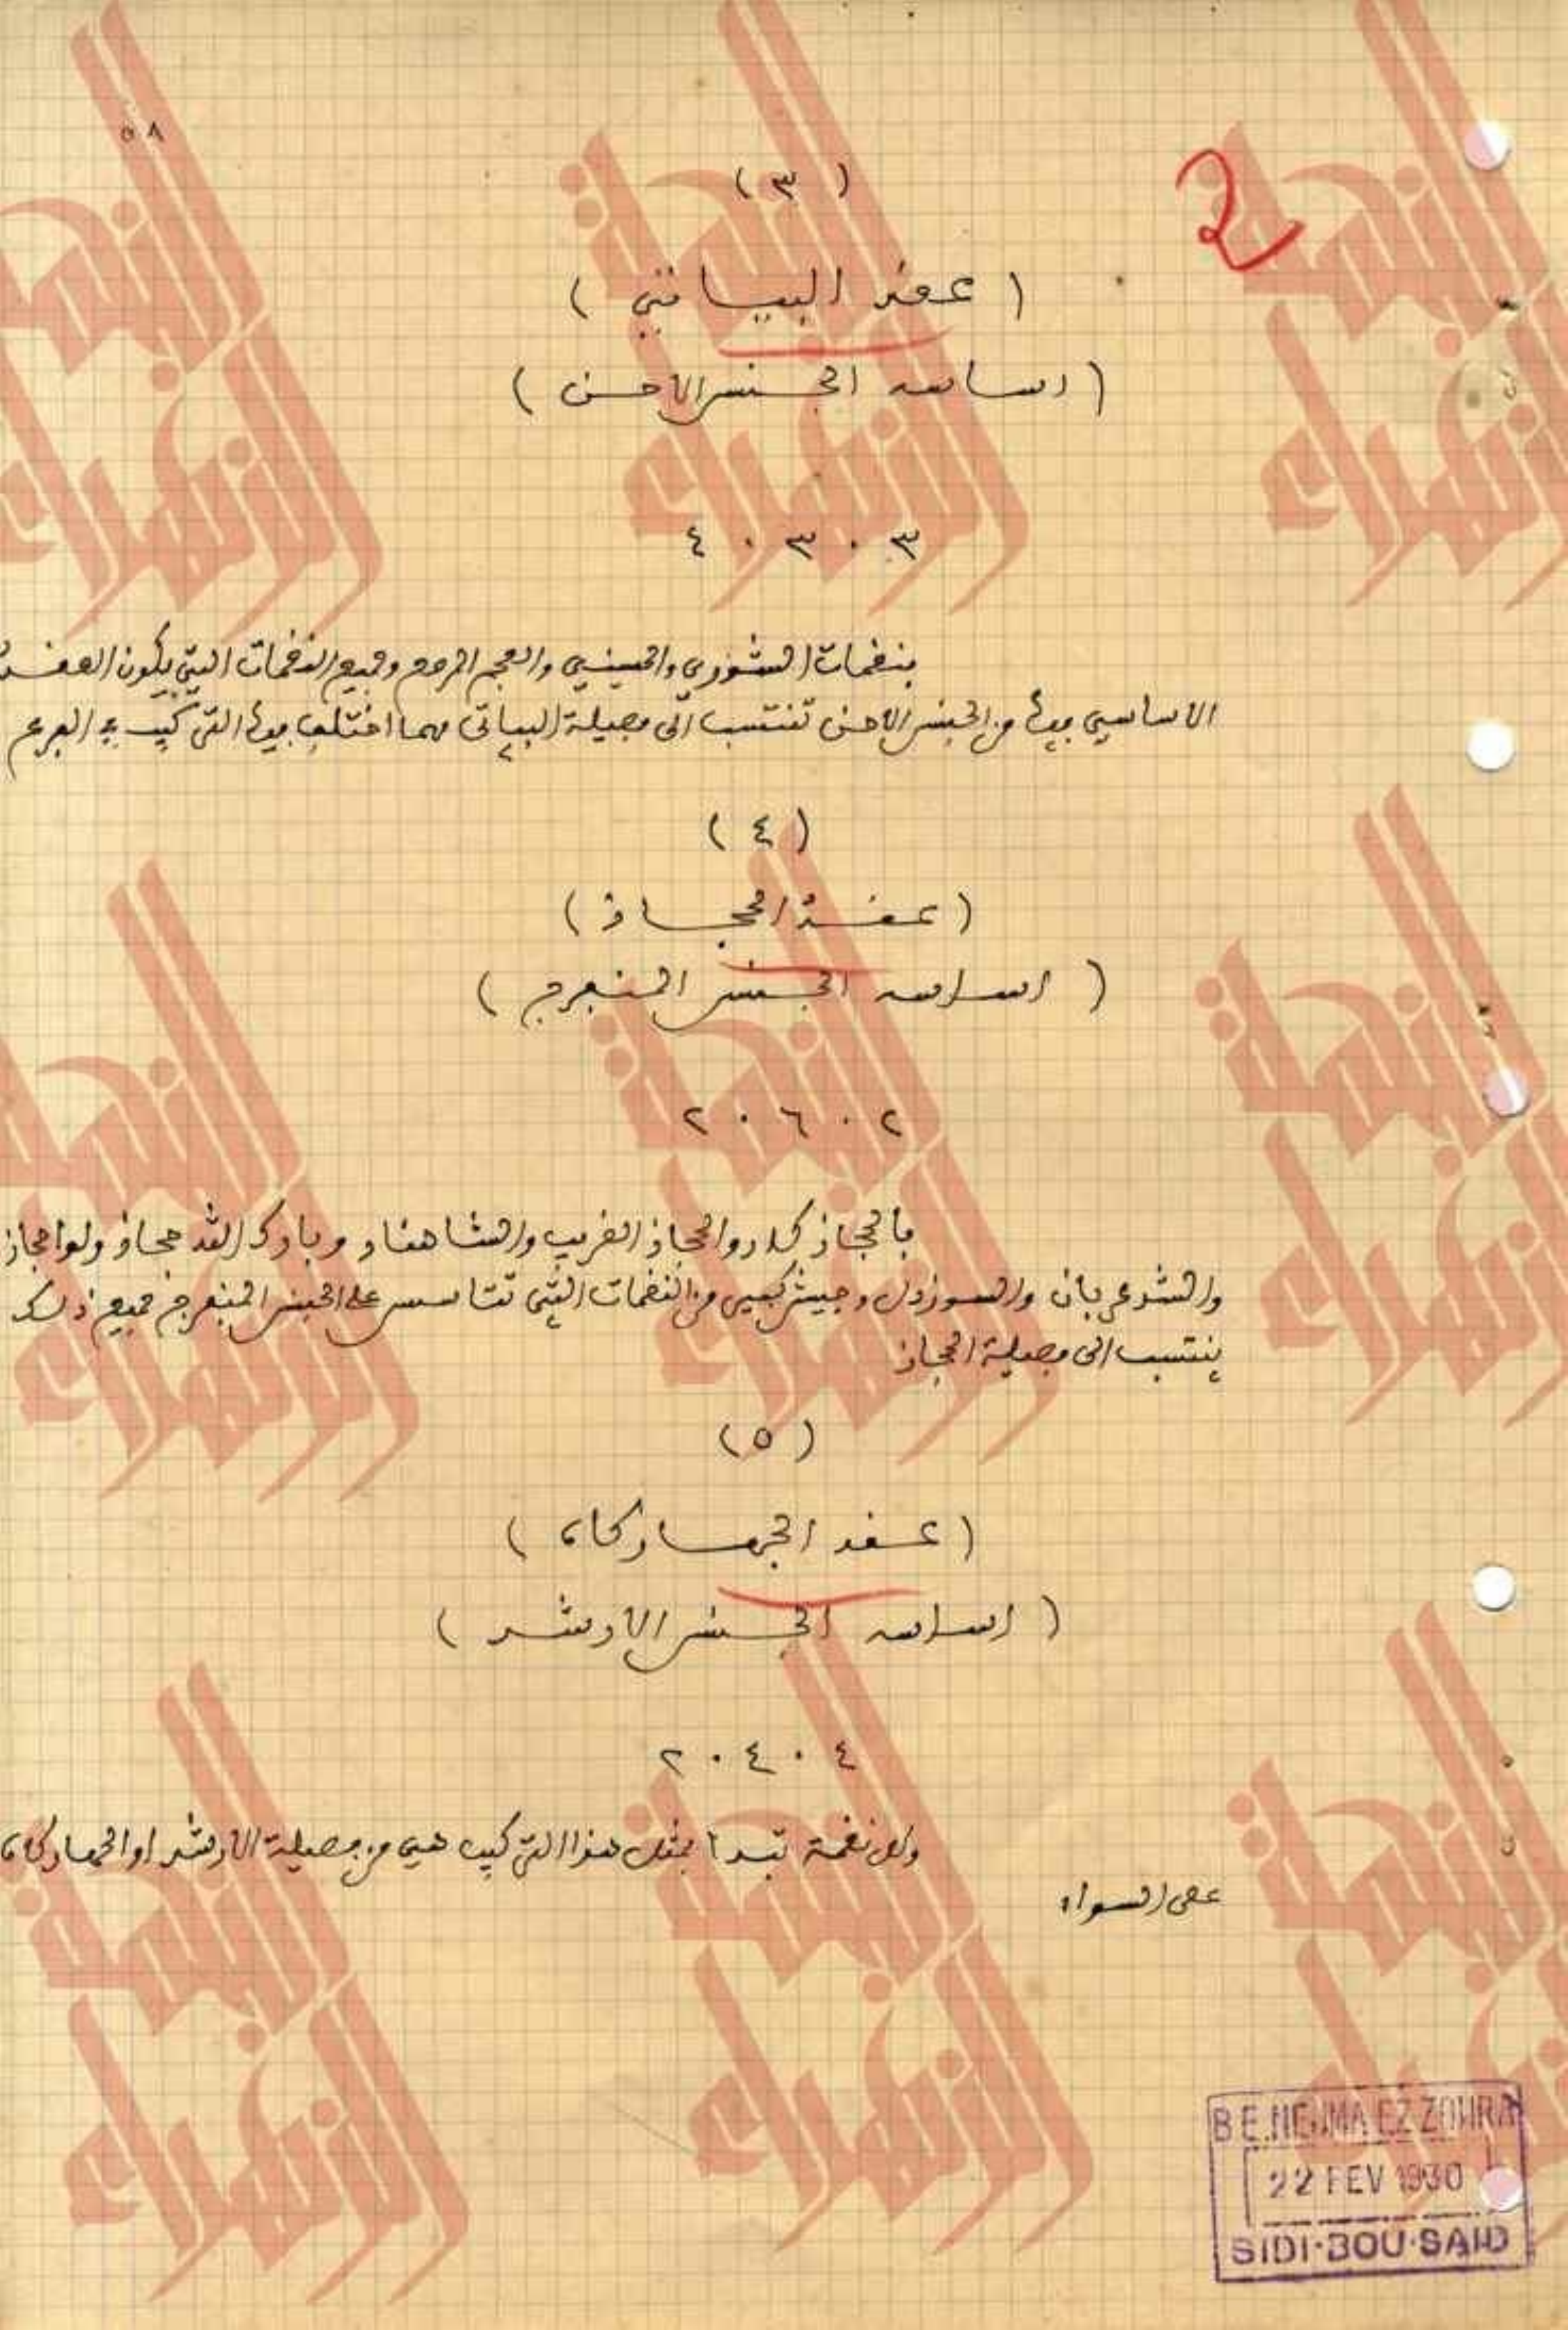 ٥٨
2
( ٣ )
( عقد البياتي )
( اساسه الجنس الاحن )
٣ . ٣ . ٤
فنغمات الشوري والحسيني والعجم المرصع وجميع النغمات التي يكون العقد
الاساسي فيها من الجنس الاحن تنتسب الى فصيلة البياتي مهما اختلف فيها التركيب في الفرع
( ٤ )
( عقد الحجاز )
( اساسه الجنس المنفرج )
٢ . ٦ . ٢
فالحجاز كلار والحجاز الغريب والشاهناز وبازك الله حجاز ولوا حجاز
والشد عربان والسوزدل وجيش كبير من النغمات التي تتاسس على الجنس المنفرج جميع ذلك
ينتسب الى فصيلة الحجاز
( ٥ )
( عقد الجهاركاه )
( اساسه الجنس الارشد )
٤ . ٤ . ٢
وكل نغمة تبدا بمثل هذا التركيب هي من فصيلة الارشد او الجهاركاه
على السواء
النجمة الزهراء
B E.NEJMA EZ ZOHRA
22 FEV 1990
SIDI-BOU-SAID